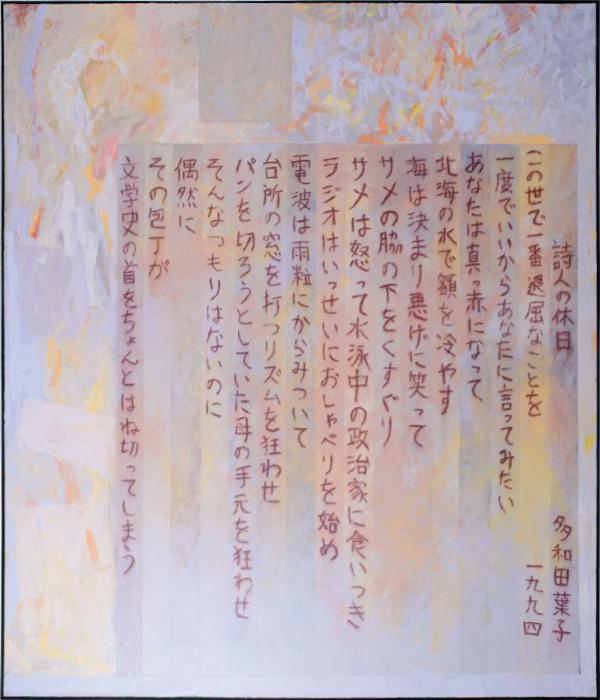 詩人の休日
多和田葉子
一九九四
この世で一番退屈なことを
一度でいいからあなたに言ってみたい
あなたは真っ赤になって
北海の水で額を冷やす
海は決まり悪げに笑って
サメの脇の下をくすぐり
サメは怒って水泳中の政治家に食いつき
ラジオはいっせいにおしゃべりを始め
電波は雨粒にからみついて
台所の窓を打つリズムを狂わせ
パンを切ろうとしていた母の手元を狂わせ
そんなつもりはないのに
偶然に
その包丁が
文学史の首をちょんとはね切ってしまう